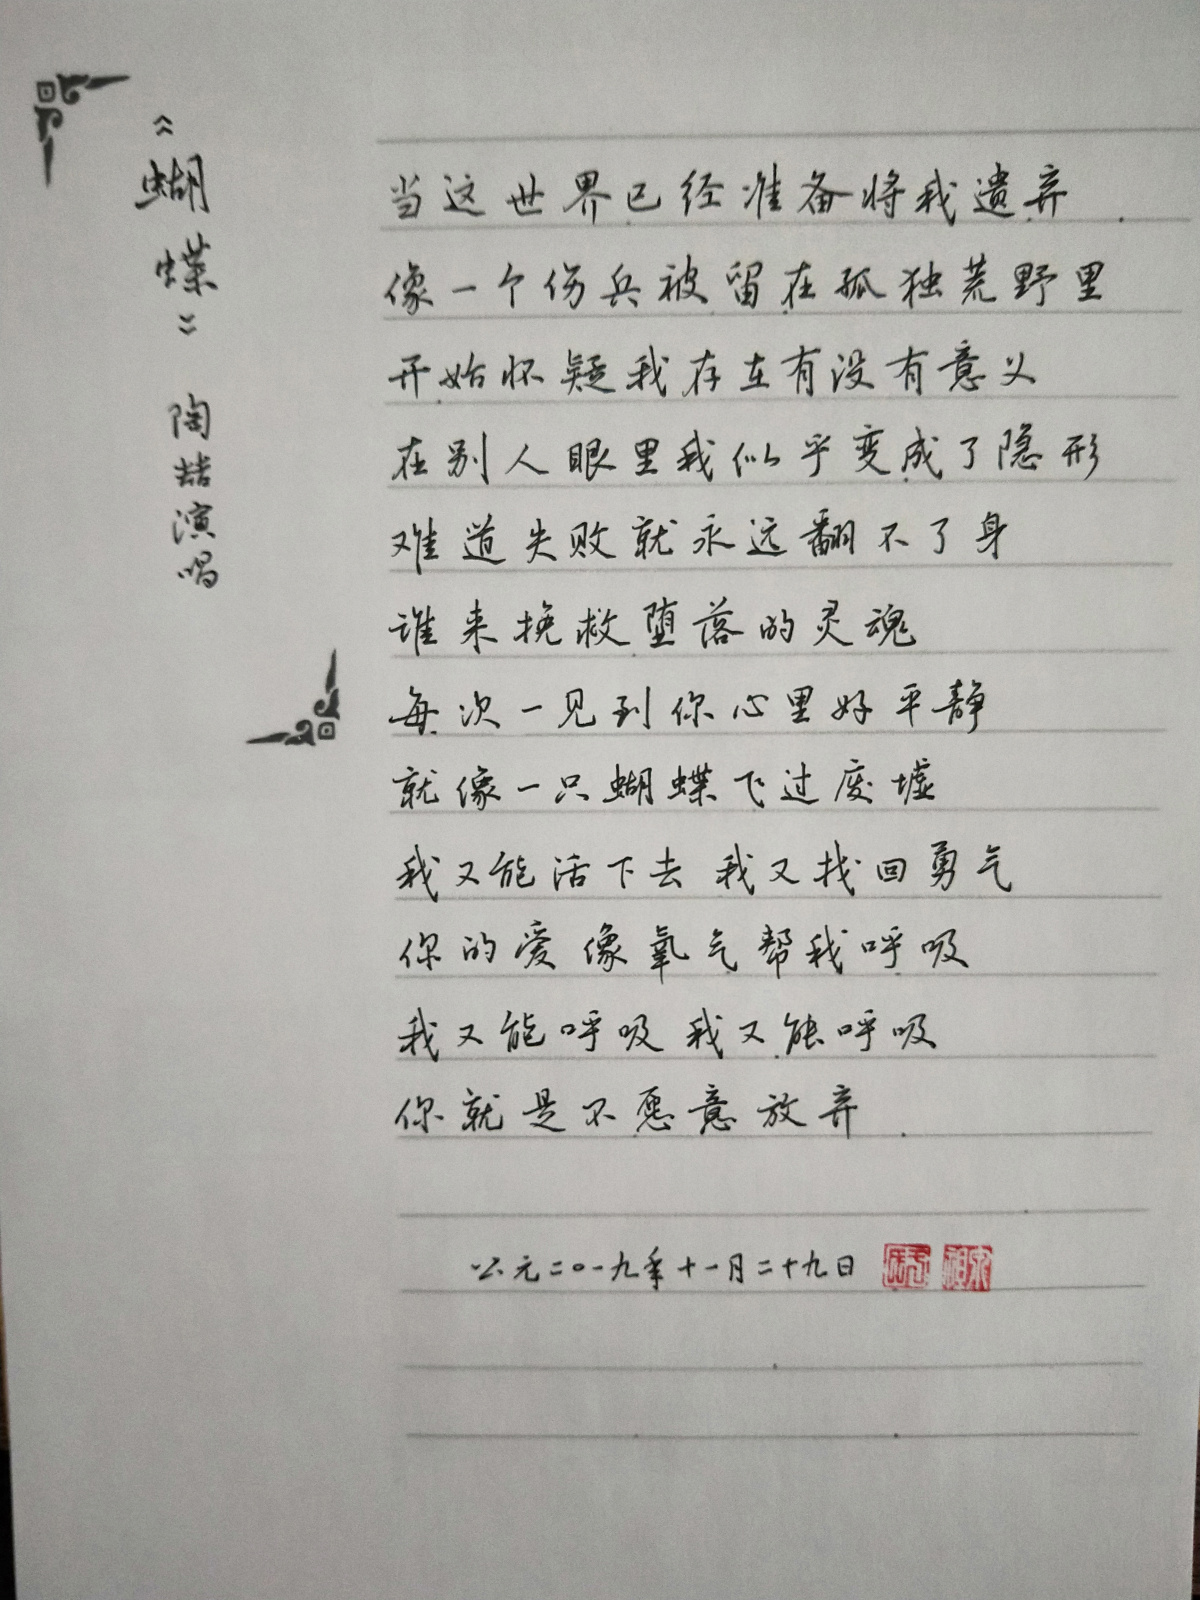 《蝴蝶》 陶喆演唱
当这世界已经准备将我遗弃
像一个伤兵被留在孤独荒野里
开始怀疑我存在有没有意义
在别人眼里我似乎变成了隐形
难道失败就永远翻不了身
谁来挽救堕落的灵魂
每次一见到你心里好平静
就像一只蝴蝶飞过废墟
我又能活下去 我又找回勇气
你的爱像氧气帮我呼吸
我又能呼吸 我又能呼吸
你就是不愿意放弃
公元二〇一九年十一月二十九日